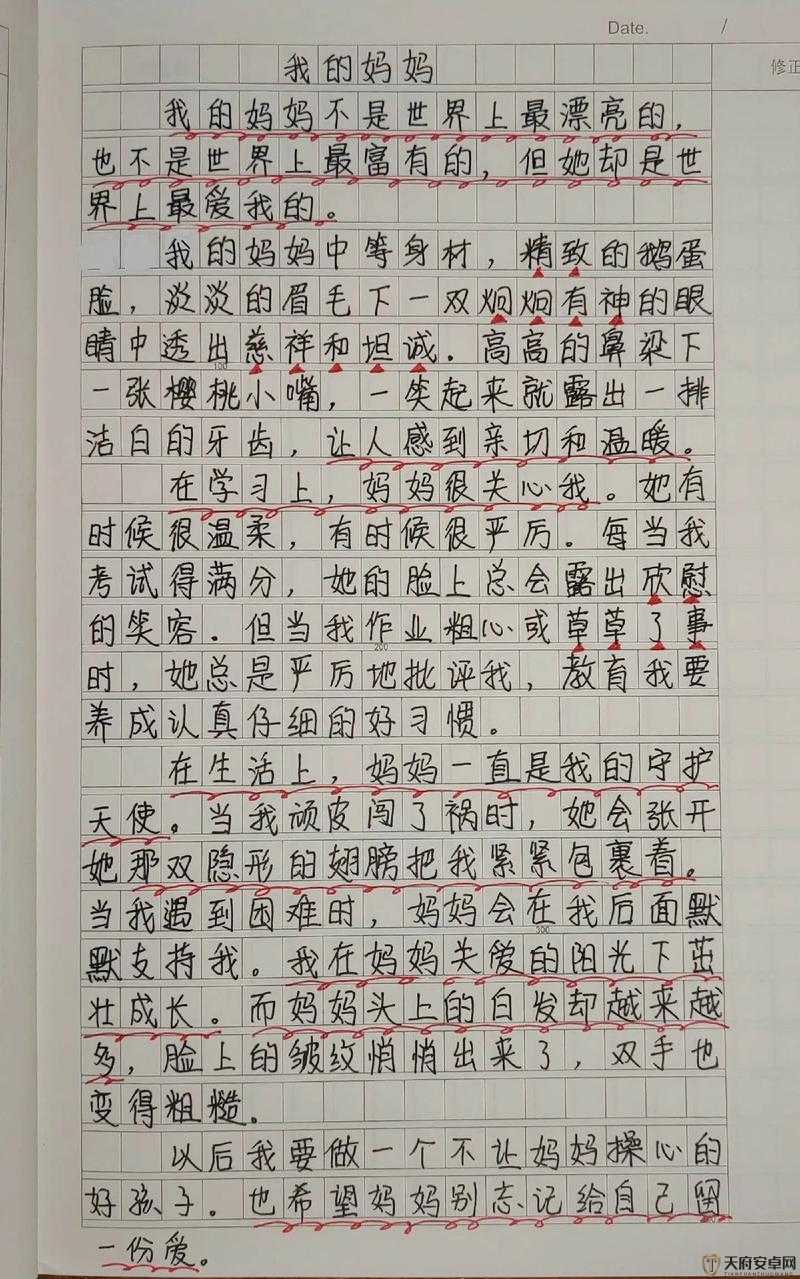 Date. /
修正
我的妈妈
我的妈妈不是世界上最漂亮的，
也不是世界上最富有的，但她却是世
界上最爱我的。
我的妈妈中等身材，精致的鹅蛋
脸，淡淡的眉毛下一双炯炯有神的眼
睛中透出慈祥和坦诚．高高的鼻梁下
100
一张樱桃小嘴，一笑起来就露出一排
洁白的牙齿，让人感到亲切和温暖。
在学习上，妈妈很关心我。她有
时候很温柔，有时候很严厉．每当我
考试得满分，她的脸上总会露出欣慰
的笑容．但当我作业粗心或草草了事
200
时，她总是严厉地批评我，教育我要
养成认真仔细的好习惯。
在生活上，妈妈一直是我的守护
天使。当我顽皮闯了祸时，她会张开
她那双隐形的翅膀把我紧紧包裹着。
当我遇到困难时，妈妈会在我后面默
300
默支持我。我在妈妈关爱的阳光下茁
壮成长。而妈妈头上的白发却越来越
多，脸上的皱纹悄悄出来了，双手也
变得粗糙。
以后我要做一个不让妈妈操心的
好孩子．也希望妈妈别忘记给自己留
一份爱。
天府安卓网